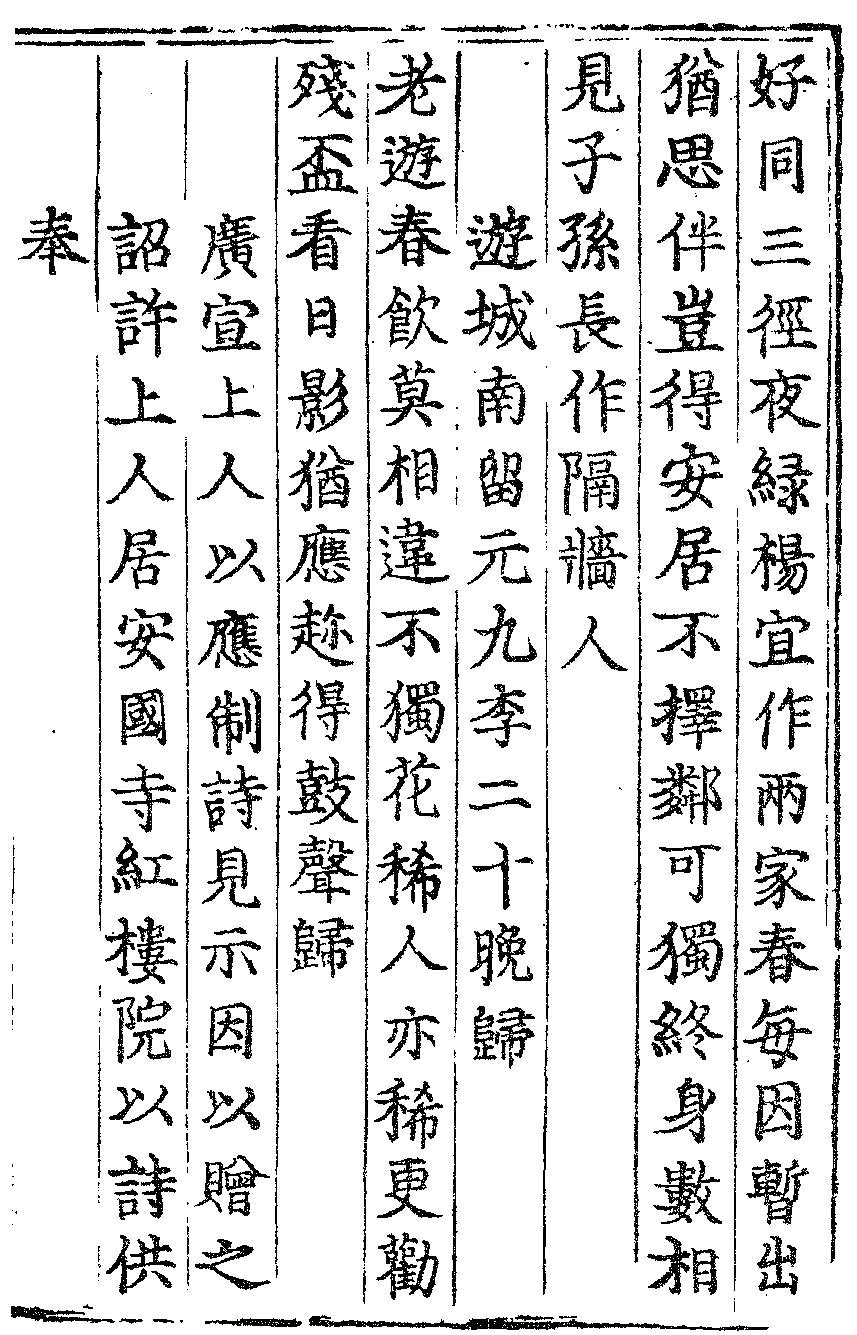 好同三徑夜緑楊宜作兩家春每因暫出
猶思伴豈得安居不擇鄰可獨終身數相
見子孫長作隔牆人
遊城南留元九李二十晚歸
老遊春飲莫相違不獨花稀人亦稀更勸
殘盃看日影猶應趂得鼓聲歸
廣宣上人以應制詩見示因以贈之
詔許上人居安國寺紅樓院以詩供
奉